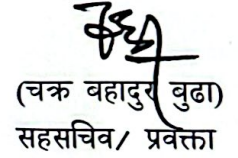 (चक्र बहादुर बुढा)
सहसचिव/ प्रवक्ता